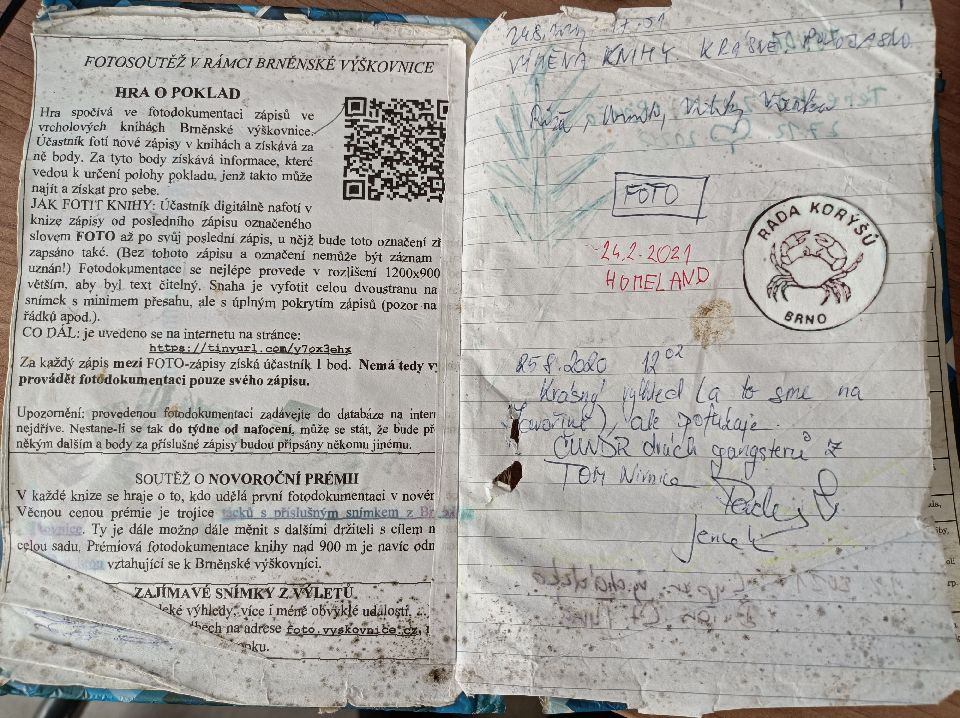 FOTOSOUTĚŽ V RÁMCI BRNĚNSKÉ VÝŠKOVNICE
HRA O POKLAD
Hra spočívá ve fotodokumentaci zápisů ve
vrcholových knihách Brněnské výškovnice.
Účastník fotí nové zápisy v knihách a získává za
ně body. Za tyto body získává informace, které
vedou k určení polohy pokladu, jenž takto může
najít a získat pro sebe.
JAK FOTIT KNIHY: Účastník digitálně nafotí v
knize zápisy od posledního zápisu označeného
slovem FOTO až po svůj poslední zápis, u nějž bude toto označení
zapsáno také. (Bez tohoto zápisu a označení nemůže být záznam
uznán!) Fotodokumentace se nejlépe provede v rozlišení 1200x900
větším, aby byl text čitelný. Snaha je vyfotit celou dvoustranu na
snímek s minimem přesahu, ale s úplným pokrytím zápisů (pozor na
řádků apod.).
CO DÁL: je uvedeno se na internetu na stránce:
https://tinyurl.com/y7ox3ehx
Za každý zápis mezi FOTO-zápisy získá účastník 1 bod. Nemá tedy
provádět fotodokumentaci pouze svého zápisu.
Upozornění: provedenou fotodokumentaci zadávejte do databáze na
nejdříve. Nestane-li se tak do týdne od nafocení, může se stát, že bude
někým dalším a body za příslušné zápisy budou připsány někomu jinému.
SOUTĚŽ O NOVOROČNÍ PRÉMII
V každé knize se hraje o to, kdo udělá první fotodokumentaci v
Věcnou cenou prémie je trojice tácků s příslušným snímkem z
Ty je dále možno dále měnit s dalšími držiteli s cílem
celou sadu. Prémiová fotodokumentace knihy nad 900 m je navíc
vztahující se k Brněnské výškovnici.
ZAJÍMAVÉ SNÍMKY Z VÝLETŮ
výhledy, více i méně obvyklé události,
na adrese foto.vyskovnice.cz,
17:51
VÝMĚNA KNIHY. KRÁSNĚ
FOTO
24.2.2021
HOMELAND
RADA KORÝŠŮ
BRNO
25.8.2020 12:02
Krásný výhled (a to sme na
Javořině), ale pofukuje.
ČUNDR dvouch gangsterů z
TOM Nivnice